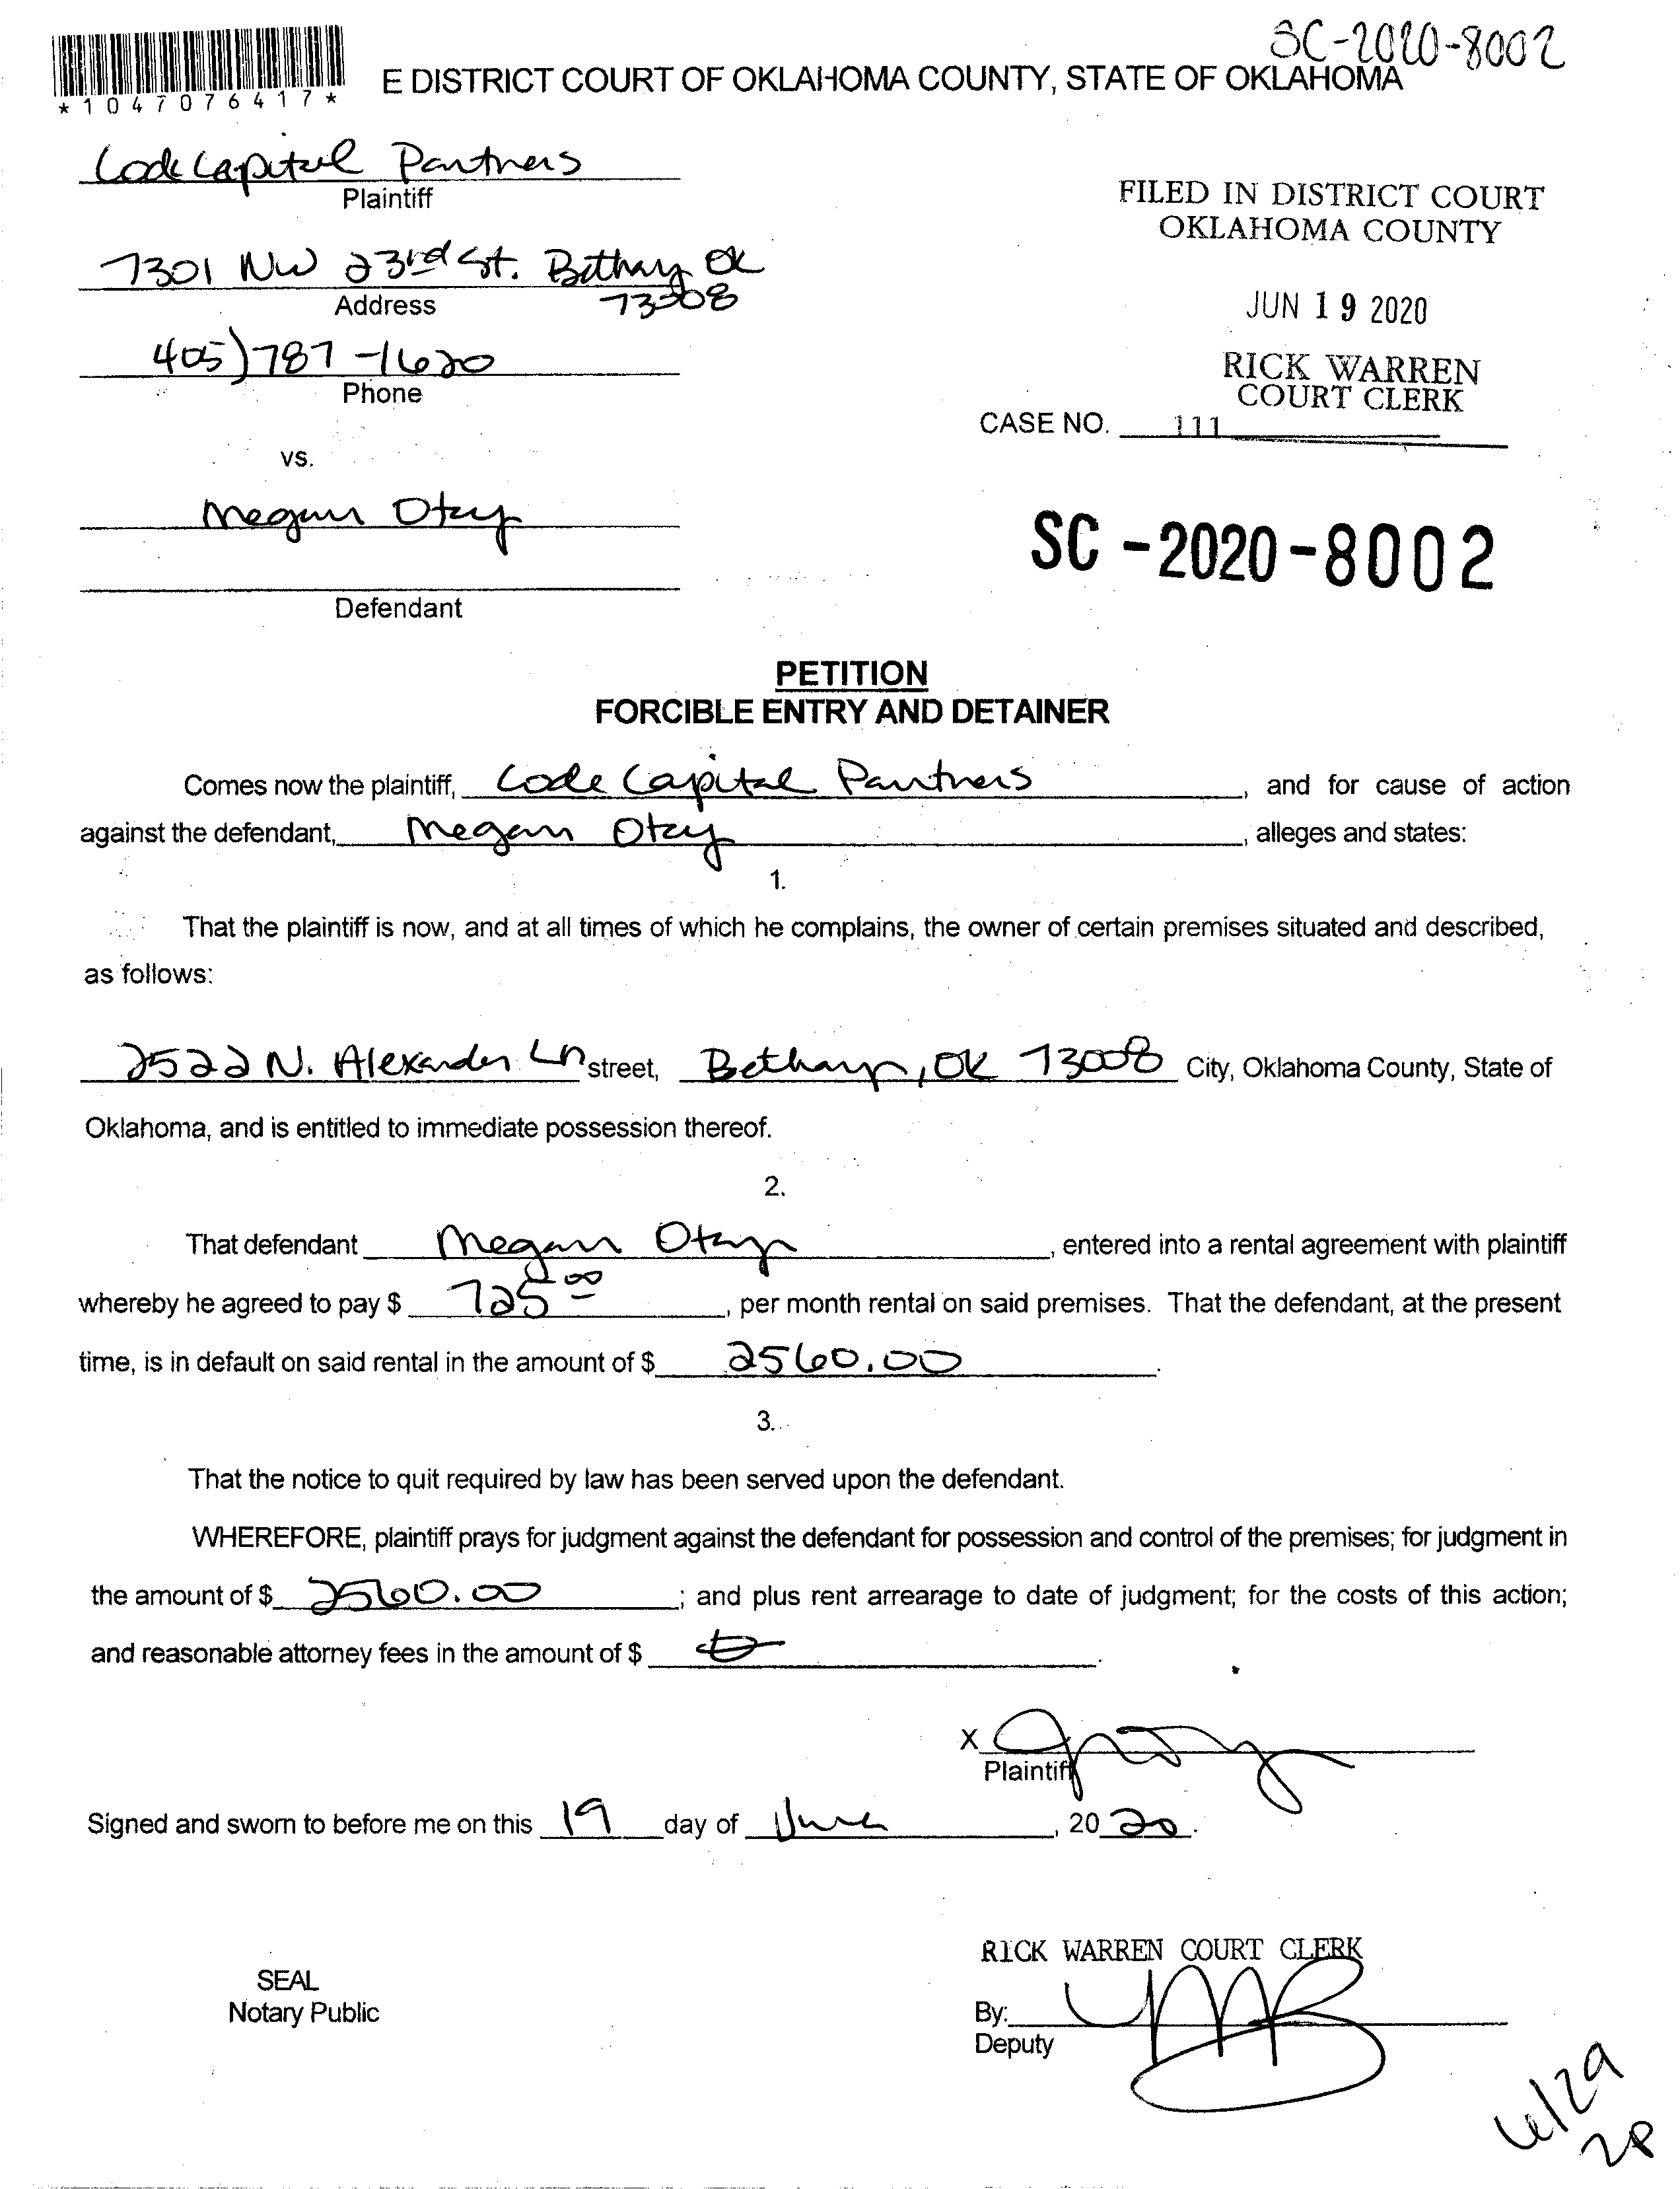 SC-2020-8002
*1047076417*
E DISTRICT COURT OF OKLAHOMA COUNTY, STATE OF OKLAHOMA
Code Capital Partners
Plaintiff
FILED IN DISTRICT COURT
OKLAHOMA COUNTY
7301 NW 23rd St. Bethany OK
73008
Address
JUN 19 2020
405)787-1620
Phone
RICK WARREN
COURT CLERK
CASE NO. 111
vs.
Megan Otey
SC-2020-8002
Defendant
PETITION
FORCIBLE ENTRY AND DETAINER
Comes now the plaintiff, Code Capital Partners, and for cause of action
against the defendant, Megan Otey, alleges and states:
1.
That the plaintiff is now, and at all times of which he complains, the owner of certain premises situated and described,
as follows:
2522 N. Alexander Ln street, Bethany, OK 73008 City, Oklahoma County, State of
Oklahoma, and is entitled to immediate possession thereof.
2.
That defendant Megan Otey, entered into a rental agreement with plaintiff
whereby he agreed to pay $ 725 00, per month rental on said premises. That the defendant, at the present
time, is in default on said rental in the amount of $ 2560.00.
3.
That the notice to quit required by law has been served upon the defendant.
WHEREFORE, plaintiff prays for judgment against the defendant for possession and control of the premises; for judgment in
the amount of $ 2560.00; and plus rent arrearage to date of judgment; for the costs of this action;
and reasonable attorney fees in the amount of $
X
Plaintiff
Signed and sworn to before me on this 19 day of June, 20 20.
RICK WARREN COURT CLERK
SEAL
Notary Public
By:
Deputy
6/29
2P